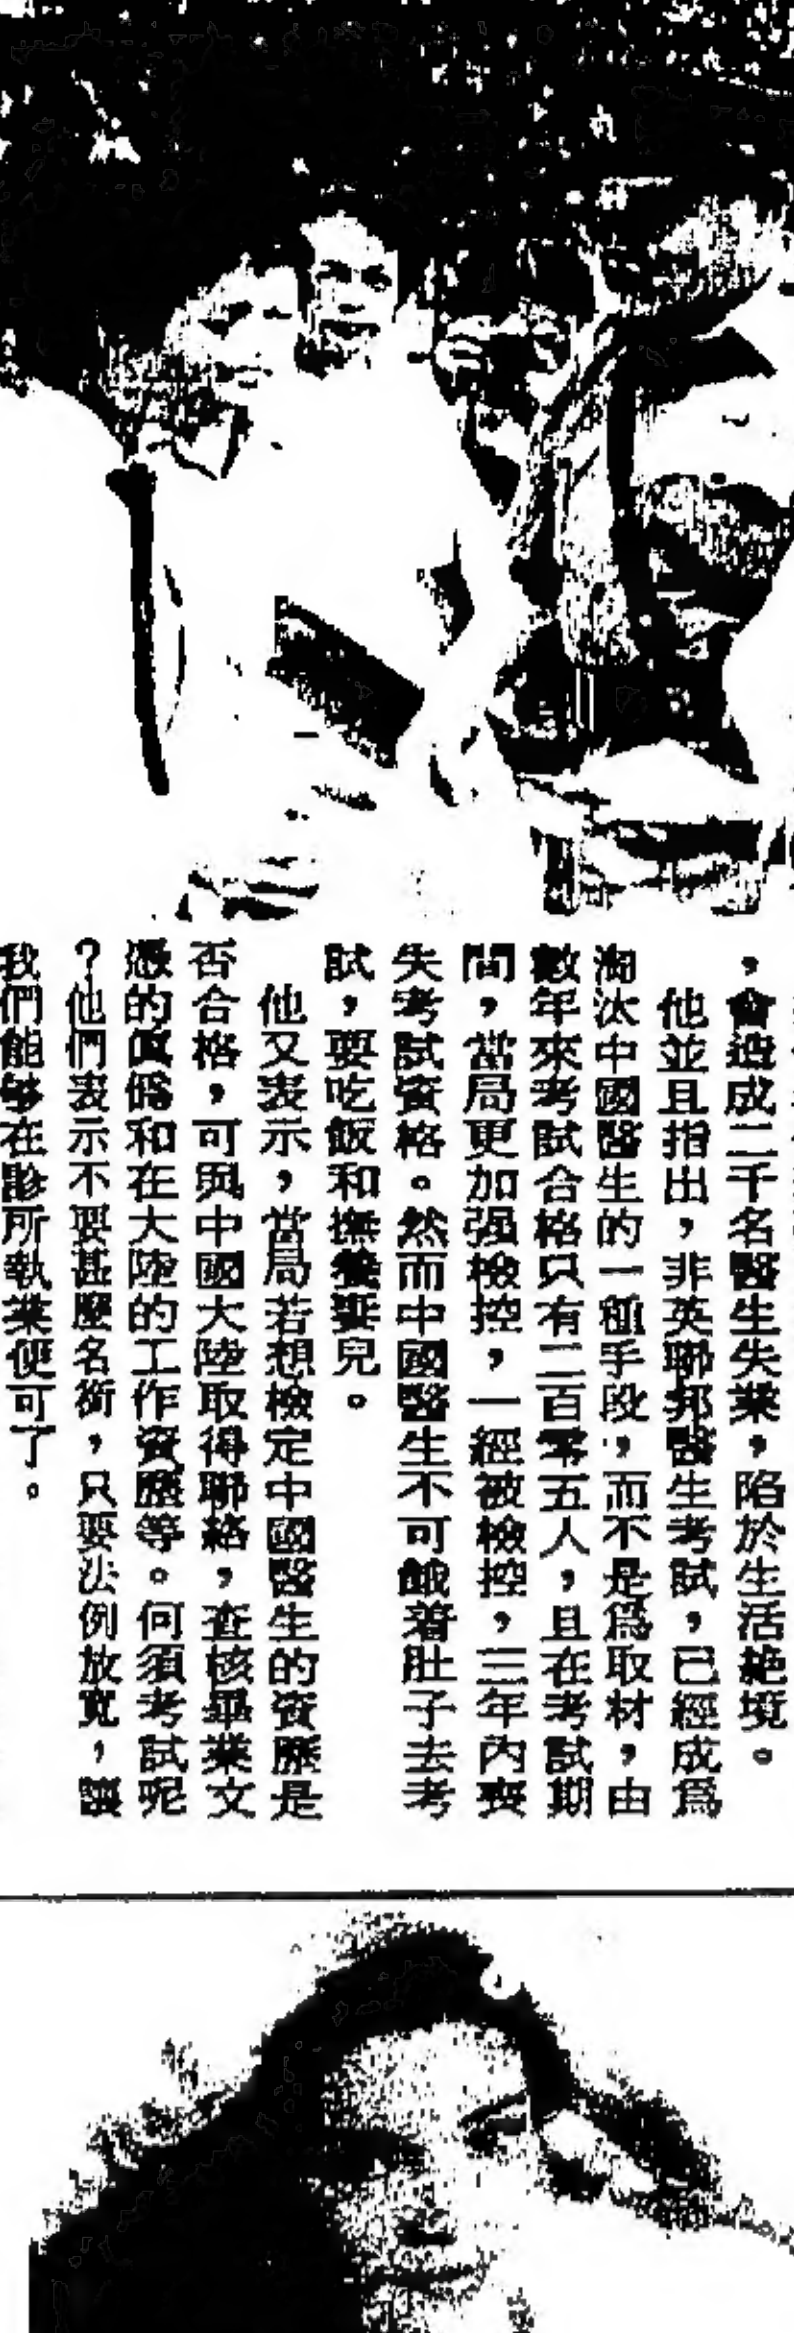 ，會造成二千名醫生失業，陷於生活絕境。
他並且指出，非英聯邦醫生考試，已經成爲
淘汰中國醫生的一種手段，而不是爲取材，由
數年來考試合格只有二百零五人，且在考試期
間，當局更加强檢控，一經被檢控，三年內喪
失考試資格。然而中國醫生不可餓着肚子去考
試，要吃飯和撫養妻兒。
他又表示，當局若想檢定中國醫生的資歷是
否合格，可與中國大陸取得聯絡，查核畢業文
憑的眞僞和在大陸的工作資歷等。何須考試呢
？他們表示不要甚麼名銜，只要法例放寬，讓
我們能够在診所執業便可了。